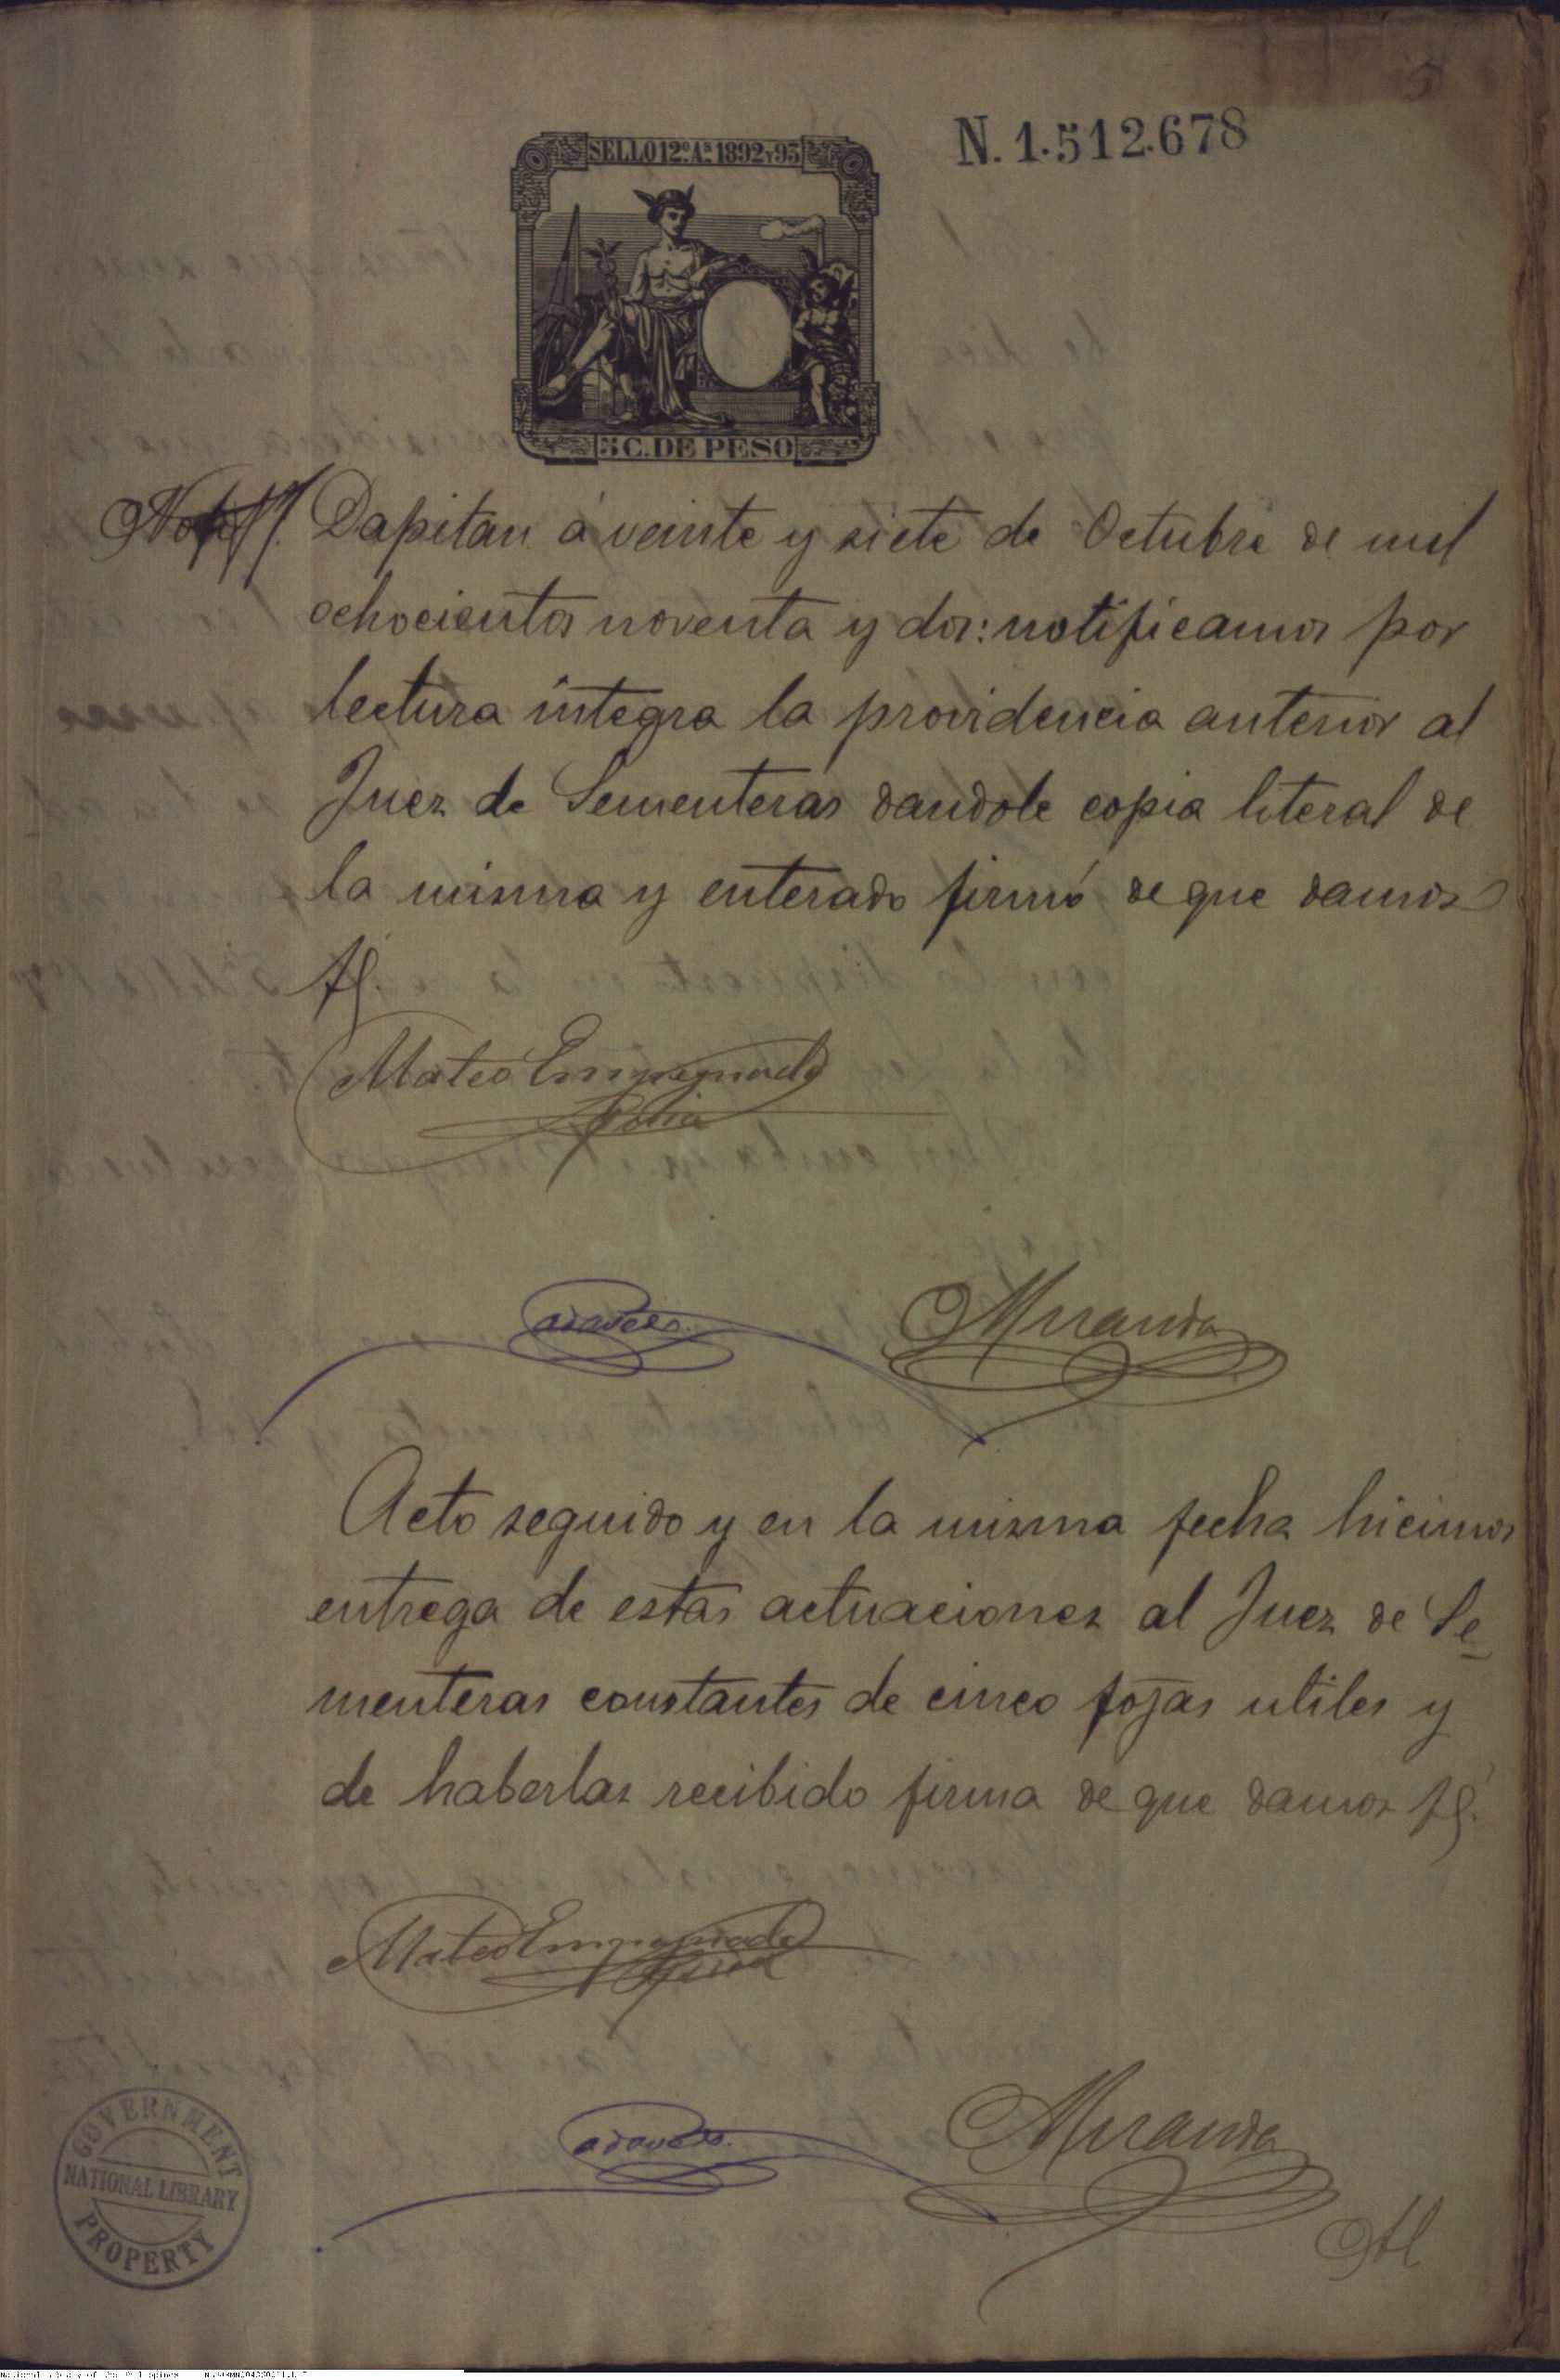 5
N. 1.512.678
SELLO 12º Aˢ 1892 Y 93
5 C. DE PESO
Dapitan á veinte y siete de Octubre de mil
ochocientos noventa y dos: notificamos por
lectura integra la providencia anterior al
Juez de Sementeras dandole copia literal de
la misma y enterado firmó de que damos
fé.
Mateo Empaynado
Miranda
Acto seguido y en la misma fecha hicimos
entrega de estas actuaciones al Juez de Se-
menteras constantes de cinco fojas utiles y
de haberlas recibido firma de que damos fé.
Mateo Empaynado
Miranda
Al
GOVERNMENT
NATIONAL LIBRARY
PROPERTY